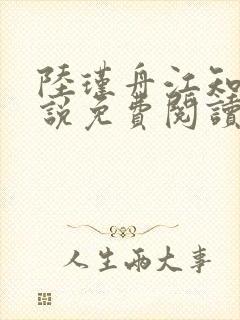 陸瑾舟江知
說免費閱讀
人生兩大事